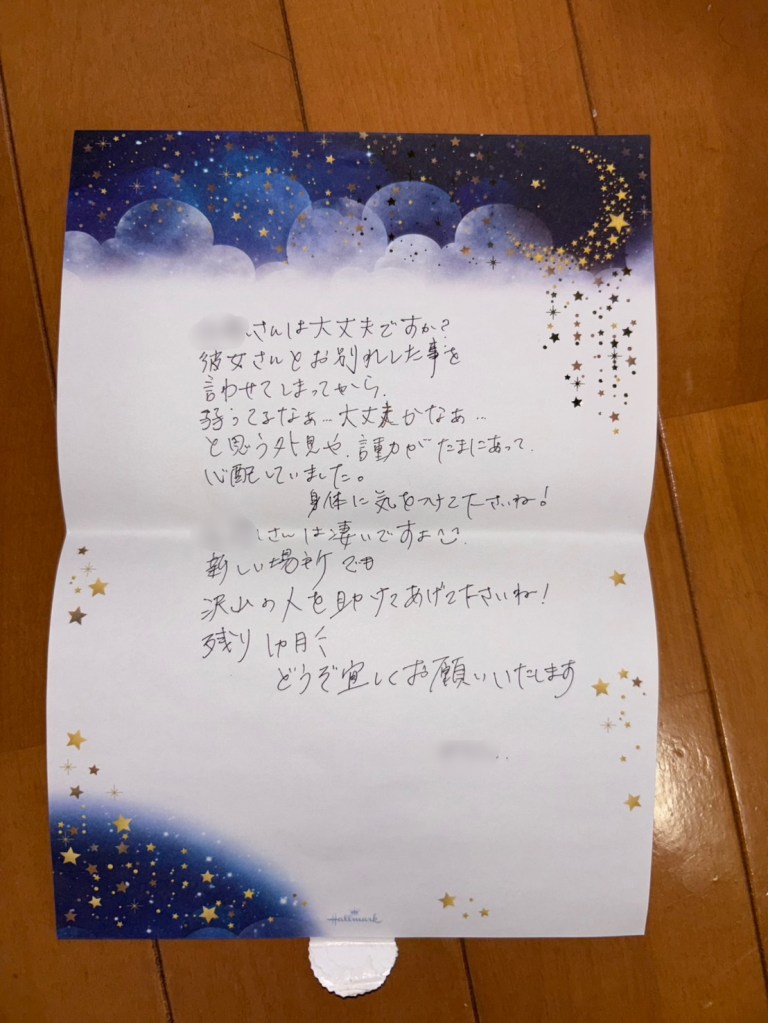 さんは大丈夫ですか?
彼女さんとお別れした事を
言わせてしまってから、
弱ってるなぁ…大丈夫かなぁ…
と思う外見や、言動がたまにあって、
心配していました。
身体に気をつけて下さいね!
さんは凄いですよ
新しい場所でも
沢山の人を助けてあげて下さいね!
残り1ヵ月
どうぞ宜しくお願いいたします
Hallmark